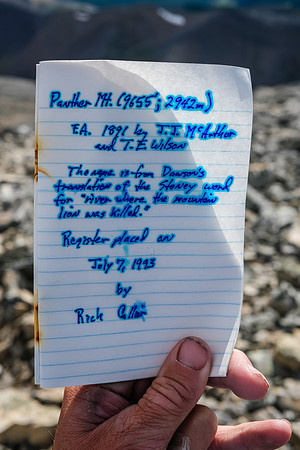 Panther Mt. (9655'; 2942m)
F.A. 1891 by J.J. McArthur
and T.E Wilson
The name is from Dawson's
translation of the Stoney word
for "river where the mountain
lion was killed."
Register placed on
July 7, 1993
by
Rick